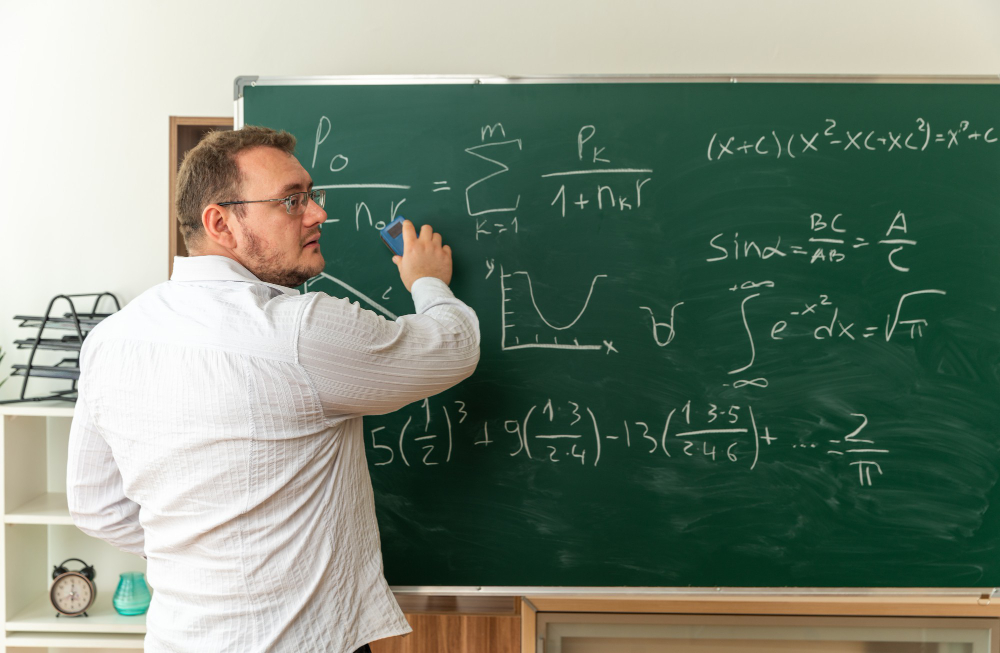 P₀/(- n₀r) = Σ_{k=1}^{m} P_k/(1+n_k r)
(x+c)(x²-xc+xc²)=x³+c
Sinα = BC/AB = A/C
c
y
x
∀
∫_{-∞}^{+∞} e^{-x²}dx = √π
5(1/2)³ + 9(1·3/2·4) - 13(1 3·5/2·4 6) + ... = 2/π